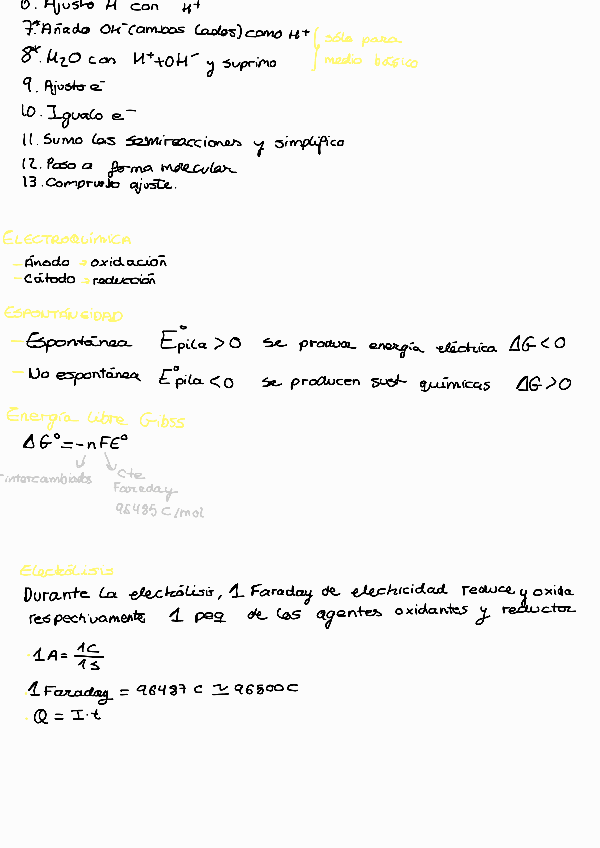 6. Ajusto H con H⁺
7.* Añado OH⁻ (ambos lados) como H⁺
8* H₂O con H⁺+OH⁻ y suprimo
sólo para
medio básico
9. Ajusto e⁻
10. Igualo e⁻
11. Sumo las semireacciones y simplifico
12. Paso a forma molecular
13. Compruebo ajuste.
ELECTROQUÍMICA
- Ánodo → oxidación
- Cátodo → reducción
ESPONTANEIDAD
- Espontánea E°pila > 0 se produce energía eléctrica ΔG < 0
- No espontánea E°pila < 0 se producen sust químicas ΔG > 0
Energía libre Gibss
ΔG° = -nFE°
e⁻ intercambiados
Cte
Faraday
96485 C/mol
Electrólisis
Durante la electrólisis, 1 Faraday de electricidad reduce y oxida
respectivamente 1 peq de los agentes oxidantes y reductor
1A = 1C/1s
1 Faraday = 96487 C ≃ 96500C
Q = I·t